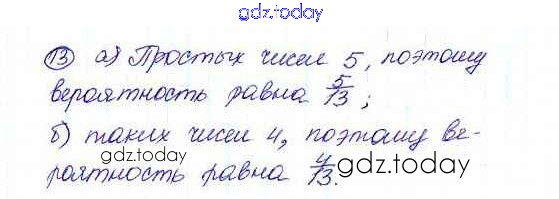 gdz.today
13 а) Простых чисел 5, поэтому
gdz.today
вероятность равна 5/13;
б) таких чисел 4, поэтому ве-
gdz.today
роятность равна 4/13.
gdz.today